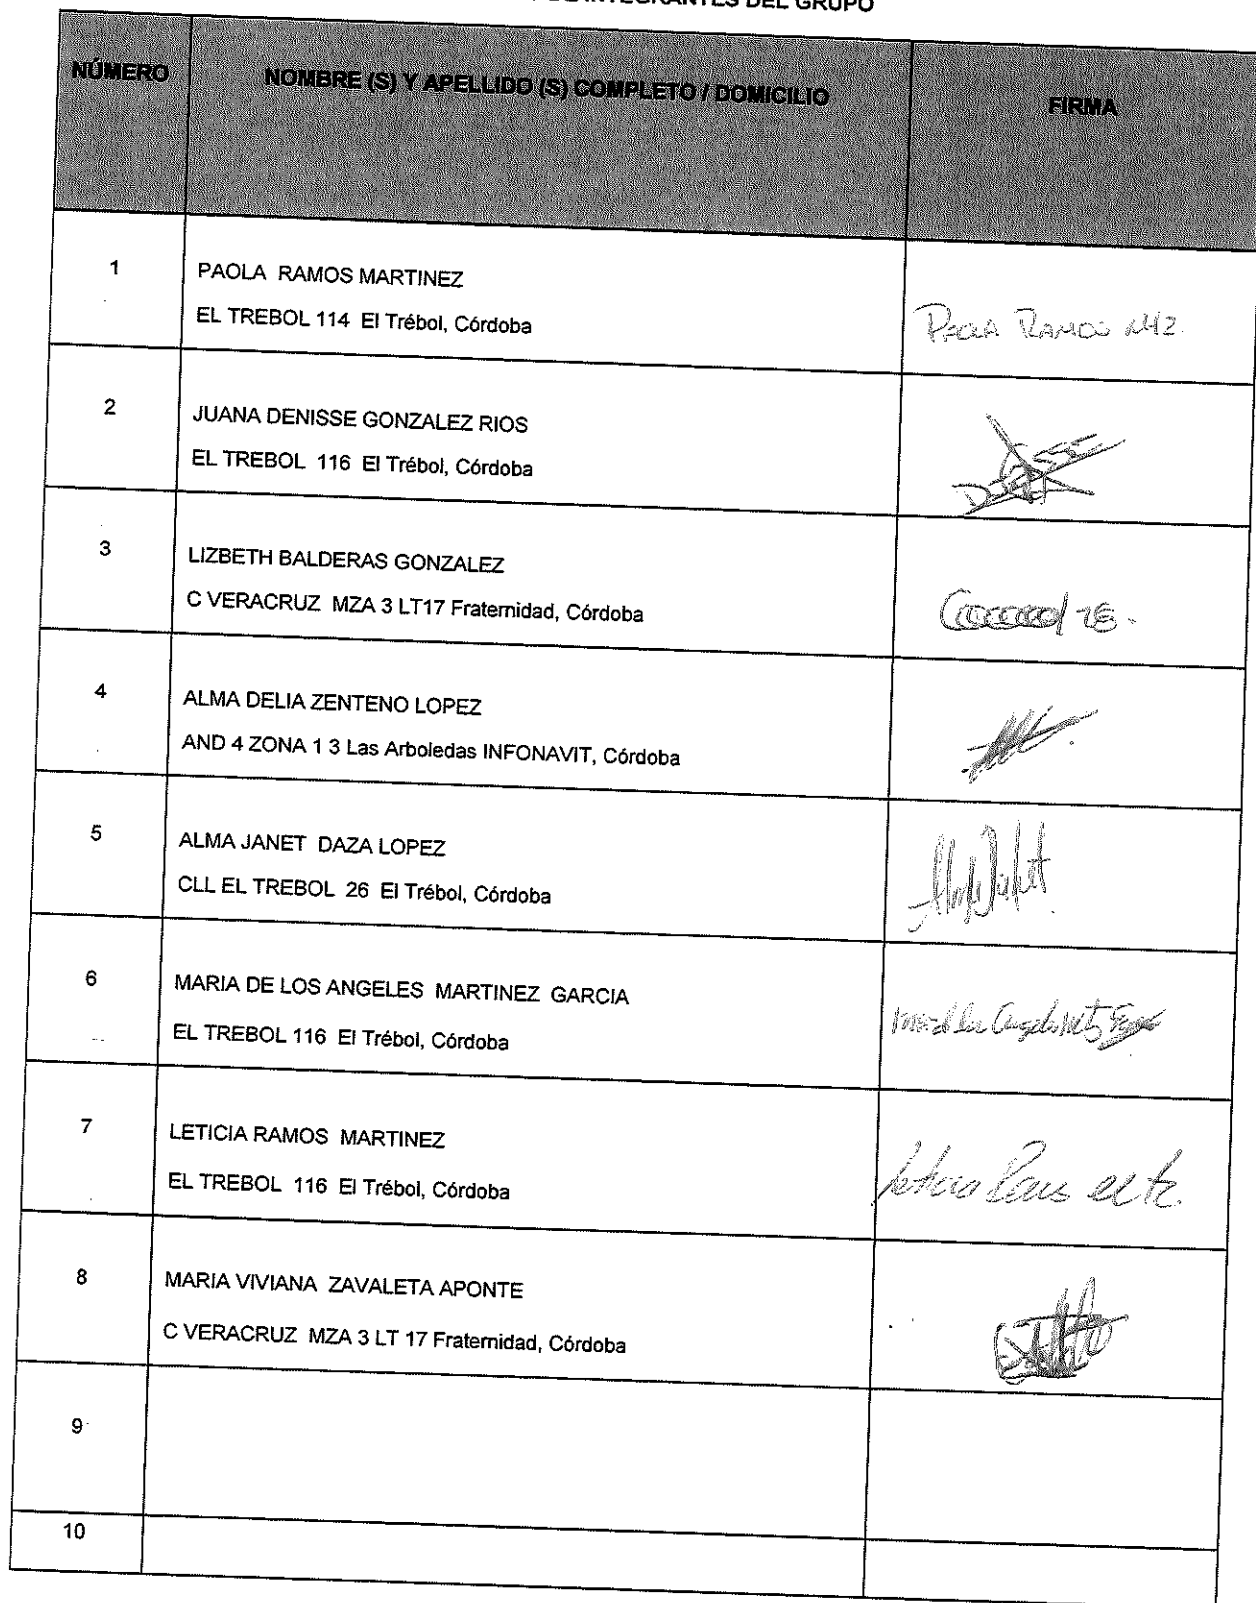 INTEGRANTES DEL GRUPO
NÚMERO NOMBRE (S) Y APELLIDO (S) COMPLETO / DOMICILIO FIRMA
1 PAOLA RAMOS MARTINEZ
EL TREBOL 114 El Trébol, Córdoba
PAOLA RAMOS MTZ.
2 JUANA DENISSE GONZALEZ RIOS
EL TREBOL 116 El Trébol, Córdoba
3 LIZBETH BALDERAS GONZALEZ
C VERACRUZ MZA 3 LT17 Fraternidad, Córdoba
4 ALMA DELIA ZENTENO LOPEZ
AND 4 ZONA 1 3 Las Arboledas INFONAVIT, Córdoba
5 ALMA JANET DAZA LOPEZ
CLL EL TREBOL 26 El Trébol, Córdoba
Alma Janet
6 MARIA DE LOS ANGELES MARTINEZ GARCIA
EL TREBOL 116 El Trébol, Córdoba
7 LETICIA RAMOS MARTINEZ
EL TREBOL 116 El Trébol, Córdoba
Leticia
8 MARIA VIVIANA ZAVALETA APONTE
C VERACRUZ MZA 3 LT 17 Fraternidad, Córdoba
9
10